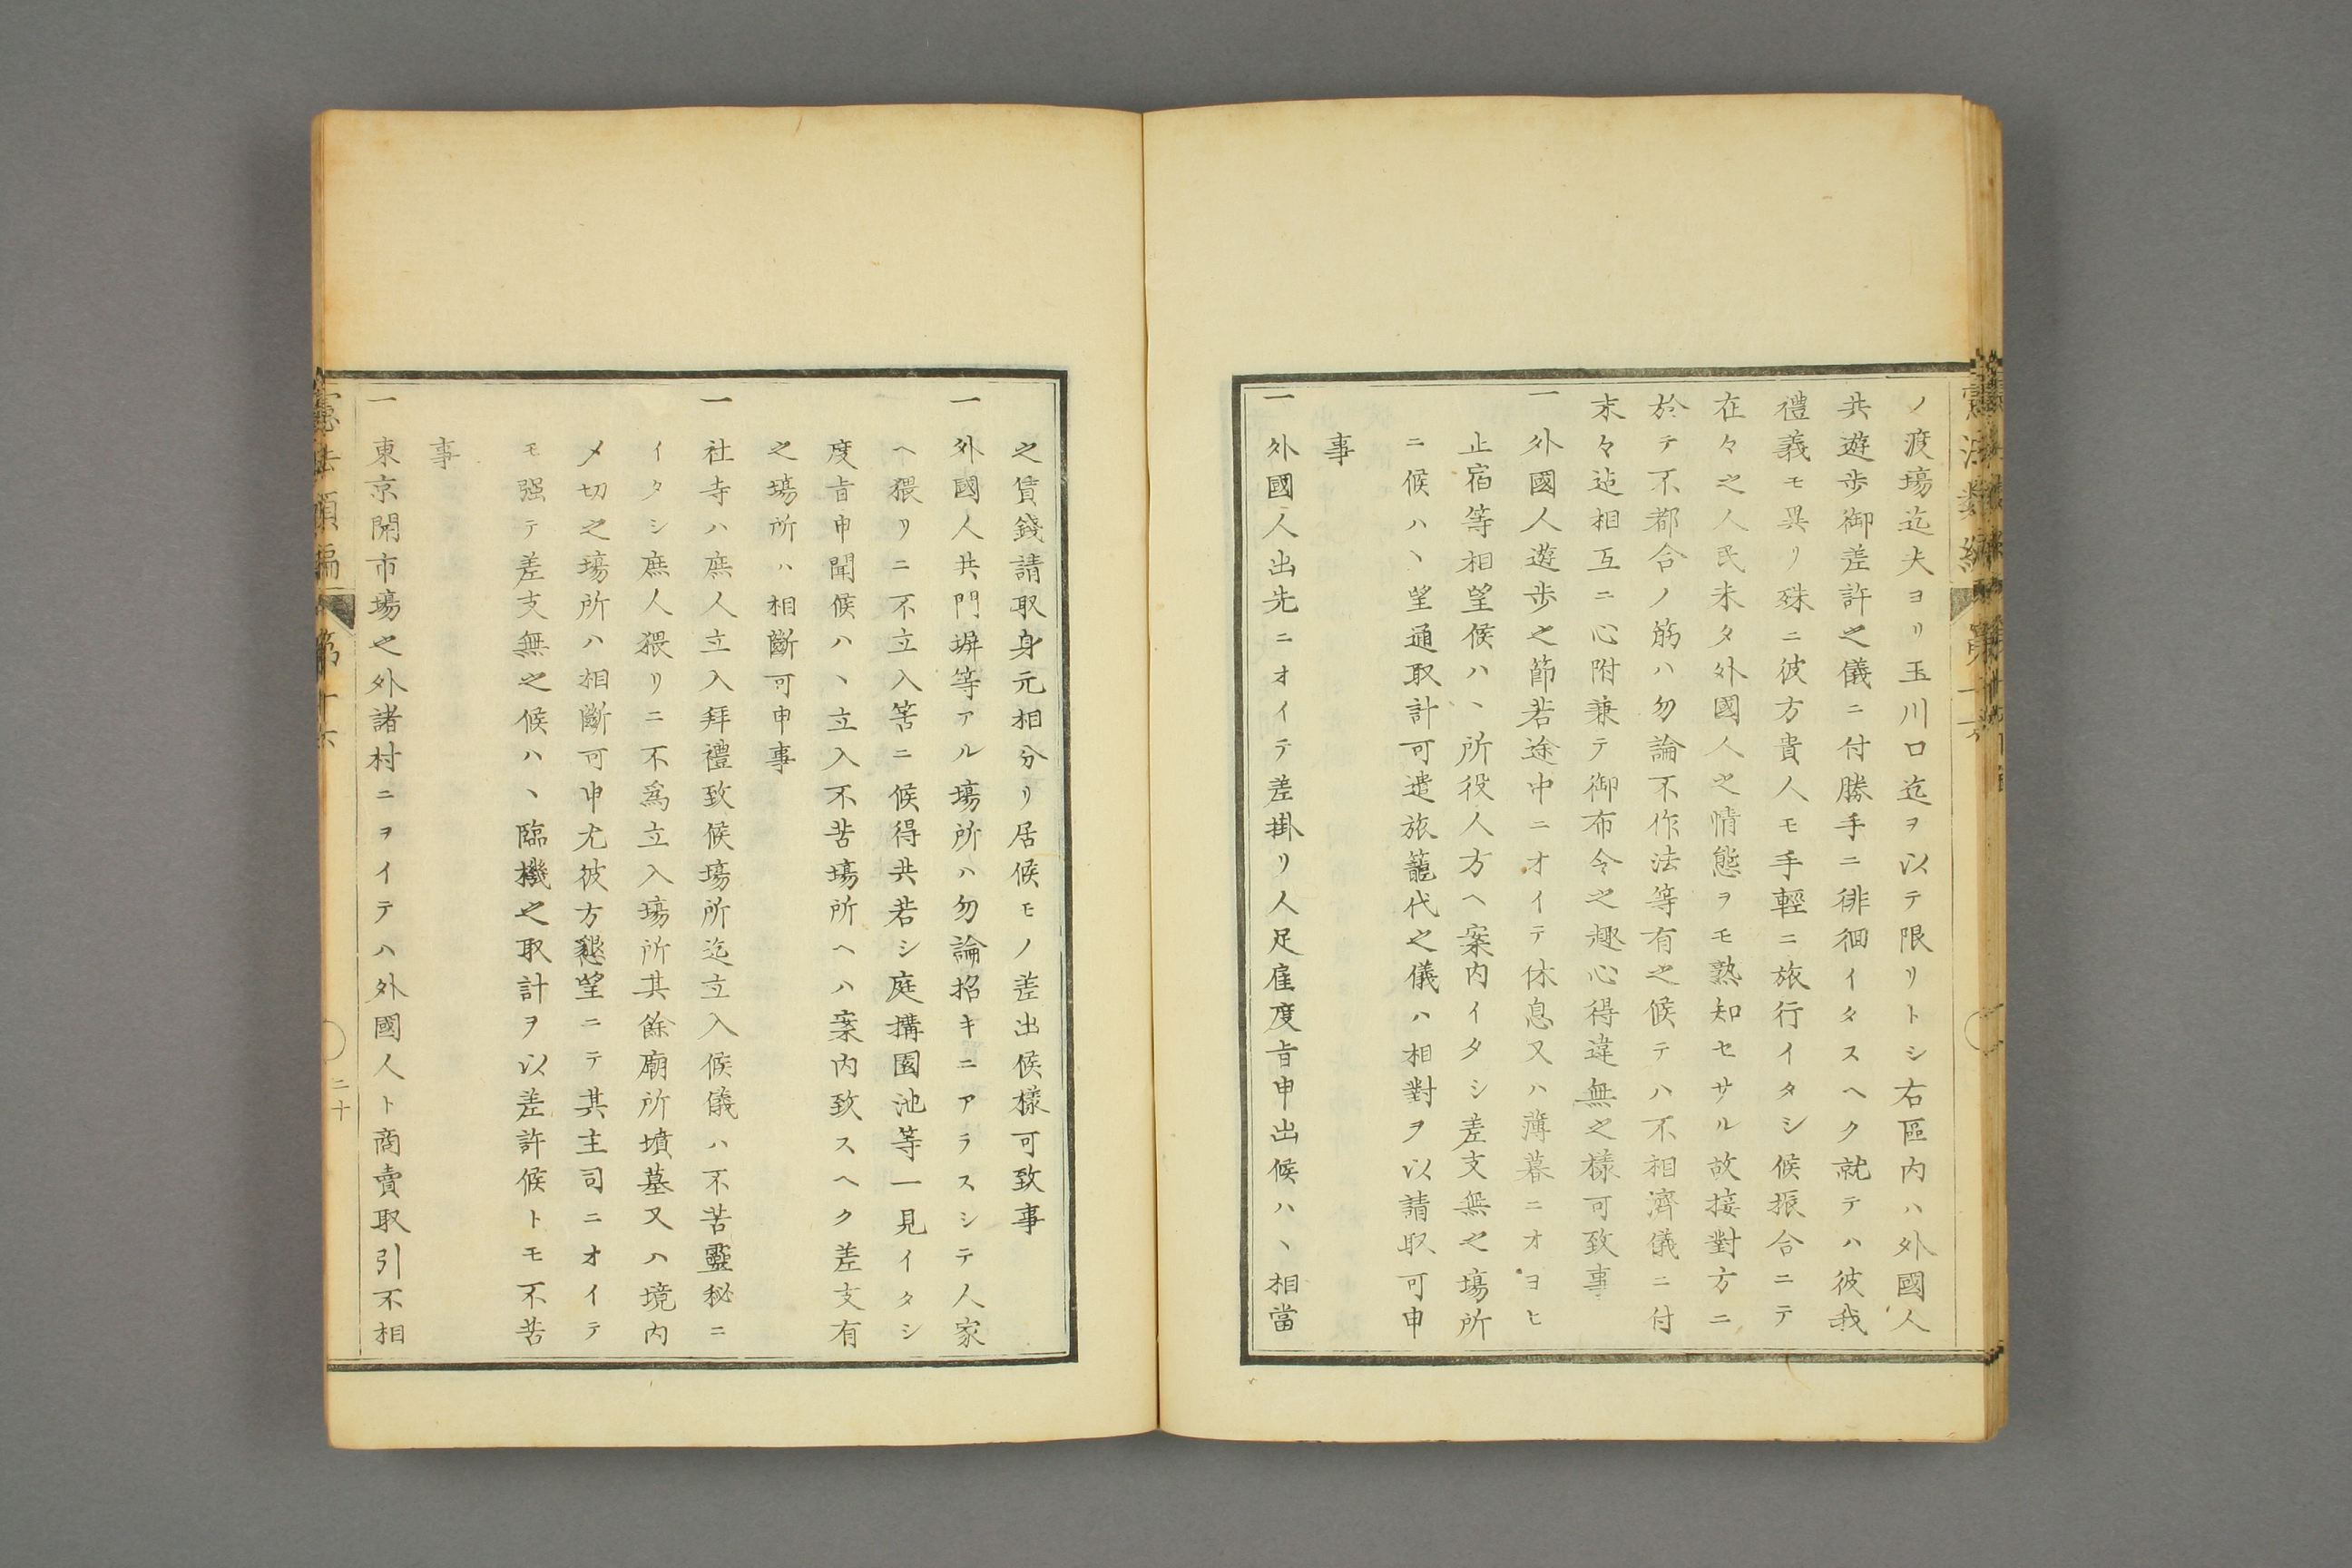 ノ渡場迄夫ヨリ玉川口迄ヲ以テ限リトシ右區内ハ外國人
共遊歩御差許之儀ニ付勝手ニ徘徊イタスヘク就テハ彼我
禮義モ異リ殊ニ彼方貴人モ手輕ニ旅行イタシ候振合ニテ
在々之人民未タ外國人之情態ヲモ熟知セサル故接對方ニ
於テ不都合ノ筋ハ勿論不作法等有之候テハ不相濟儀ニ付
末々迠相互ニ心附兼テ御布令之趣心得違無之樣可致事
一外國人遊歩之節若途中ニオイテ休息又ハ薄暮ニオヨヒ
止宿等相望候ハヽ所役人方ヘ案内イタシ差支無之場所
ニ候ハヽ望通取計可遣旅籠代之儀ハ相對ヲ以請取可申
事
一外國人出先ニオイテ差掛リ人足雇度旨申出候ハヽ相當
之賃錢請取身元相分リ居候モノ差出候樣可致事
一外國人共門塀等アル場所ハ勿論招キニアラスシテ人家
ヘ猥リニ不立入筈ニ候得共若シ庭搆園池等一見イタシ
度旨申聞候ハヽ立入不苦場所ヘハ案内致スヘク差支有
之場所ハ相斷可申事
一社寺ハ庶人立入拜禮致候場所迄立入候儀ハ不苦靈秘ニ
イタシ庶人猥リニ不爲立入場所其餘廟所墳墓又ハ境内
〆切之場所ハ相斷可申尤彼方懇望ニテ其主司ニオイテ
モ强テ差支無之候ハヽ臨機之取計ヲ以差許候トモ不苦
事
一東京開市場之外諸村ニヲイテハ外國人ト商賣取引不相
憲法類編
第十六
二十